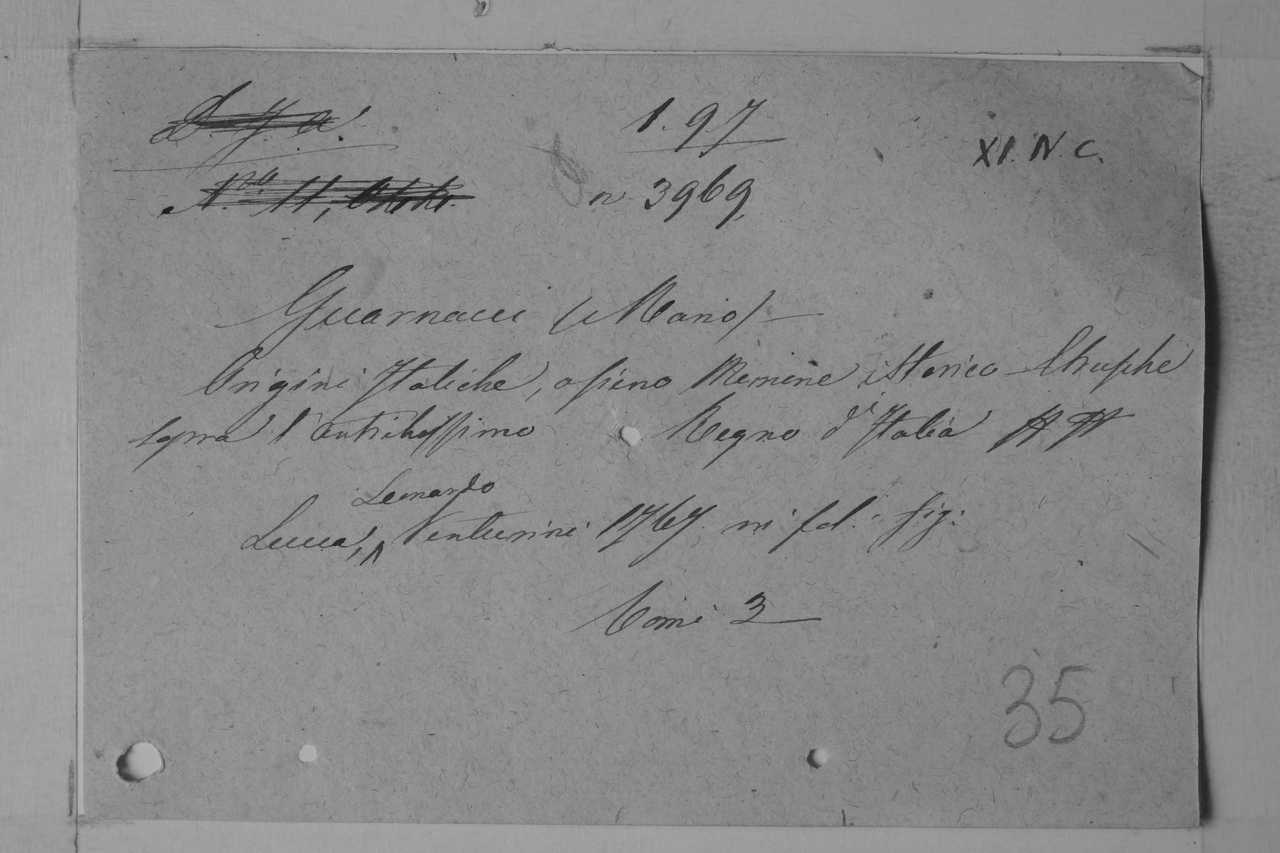 1. 97
XI. N. C.
N.º 11,
n 3969
Guarnacci (Mario)
Origini Italiche, o sieno Memorie istorico-Etrusche
sopra l'antichissimo Regno d'Italia
Leonardo
Lucca, Venturini 1767. in fol. fig:
Tomi 3
35